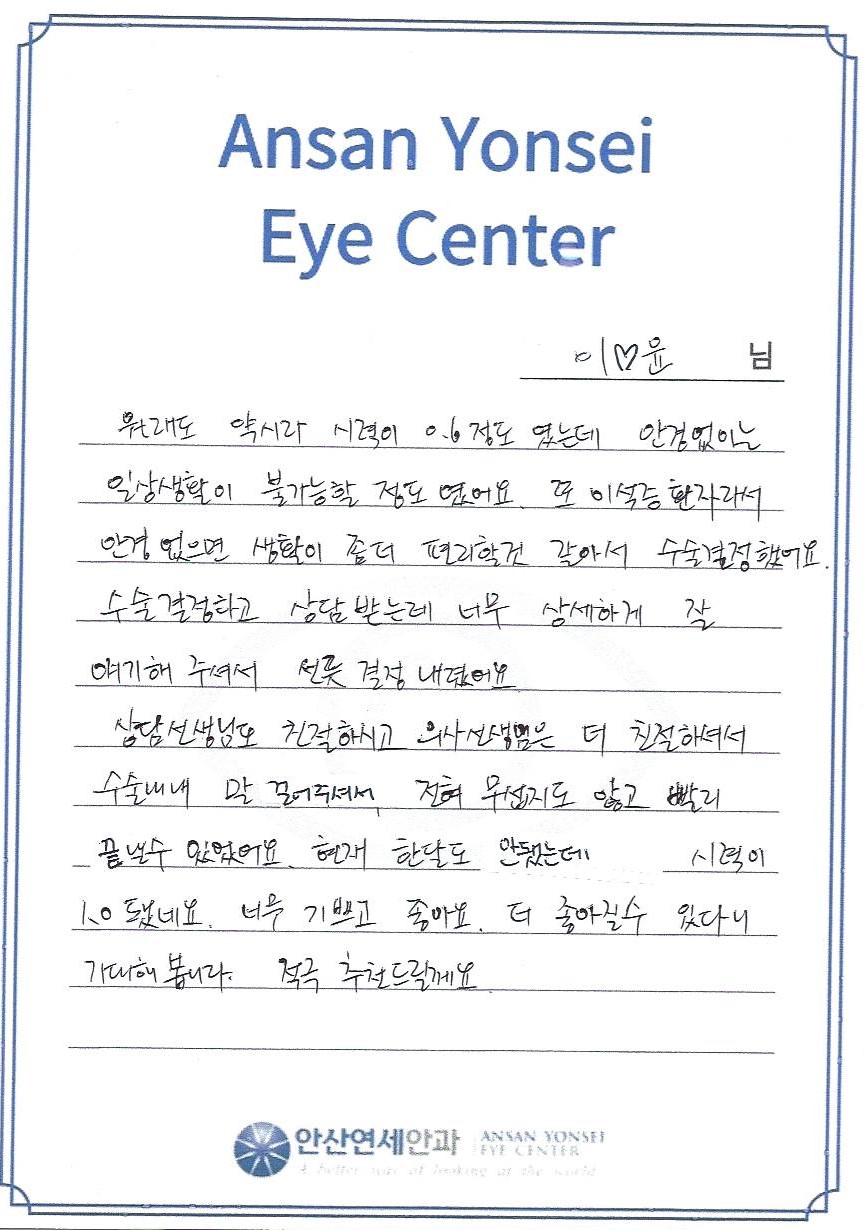 Ansan Yonsei
Eye Center
이♡윤 님
원래도 약시라 시력이 0.6정도 였는데 안경없이는
일상생활이 불가능할 정도 였어요. 또 이석증환자라서
안경 없으면 생활이 좀더 편리할건 같아서 수술결정했어요.
수술결정하고 상담받는데 너무 상세하게 잘
얘기해 주셔서 선뜻 결정 내렸어요
상담선생님도 친절하시고 의사선생님은 더 친절하셔서
수술내내 말 걸어주셔서, 전혀 무섭지도 않고 빨리
끝낼수 있었어요. 현재 한달도 안됐는데 시력이
1.0 됐네요. 너무 기쁘고 좋아요. 더 좋아질수 있다니
기대해 봅니다. 적극 추천드릴게요
안산연세안과 ANSAN YONSEI
EYE CENTER
A better way of looking at the world